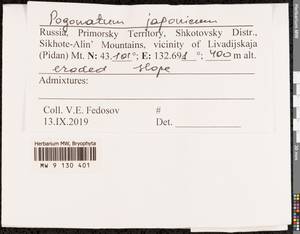 Pogonatum japonicum
Russia, Primorsky Territory, Shkotovsky Distr.,
Sikhote-Alin' Mountains, vicinity of Livadijskaja
(Pidan) Mt. N: 43.101°; E: 132.691 °; 400 m alt.
eroded slope
Admixtures:
Coll. V.E. Fedosov #
13.IX.2019 Det.
Herbarium MW, Bryophyta
MW 9 130 401